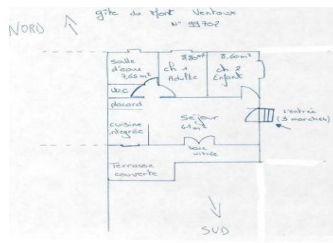 gîte du Mont Ventoux
N° 99702
NORD
salle
d'eau
7,65 m²
ch 1
Adulte
8,60 m²
ch 2
Enfant
WC
placard
cuisine
intégrée
séjour
baie
vitrée
l'entrée
(3 marches)
Terrasse
couverte
SUD